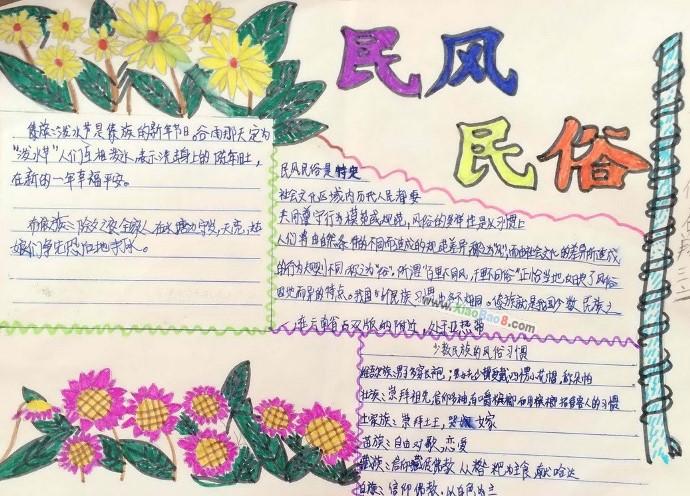 民风
民俗
傣族：泼水节是傣族的新年节日。谷雨那天定为
"泼水节"人们互相泼水，表示洗去身上的
在新的一年幸福平安。
布依族：除夕之夜全家人在水塘边守岁，天亮，姑
娘们争先恐后地去
民风民俗是特定
社会文化区域内历代人民都要
共同遵守行为模范或规范，风俗的多样性是以习惯上
人们将由自然条件的不同而造成的规范差异称之为"风"而由社会文化的差异所造成
的行为规则不同称之为"俗"所谓"百里不同风，千里不同俗"正恰当地反映了风俗
因地而异的特点。我国少数民族习惯也各不相同。傣族就是我国少数民族之
一，在云南省西双版纳附近，处于亚热带
www.XiaoBao8.com
少数民族的风俗习惯
维吾族：男子穿长袍，
壮族：崇拜祖先，信仰多神，
土家族：崇拜土王，哭嫁
苗族：自由对歌，恋爱
藏族：信仰藏传佛教 从 粑为主食，献哈达
白族：信仰佛教，以白色为主